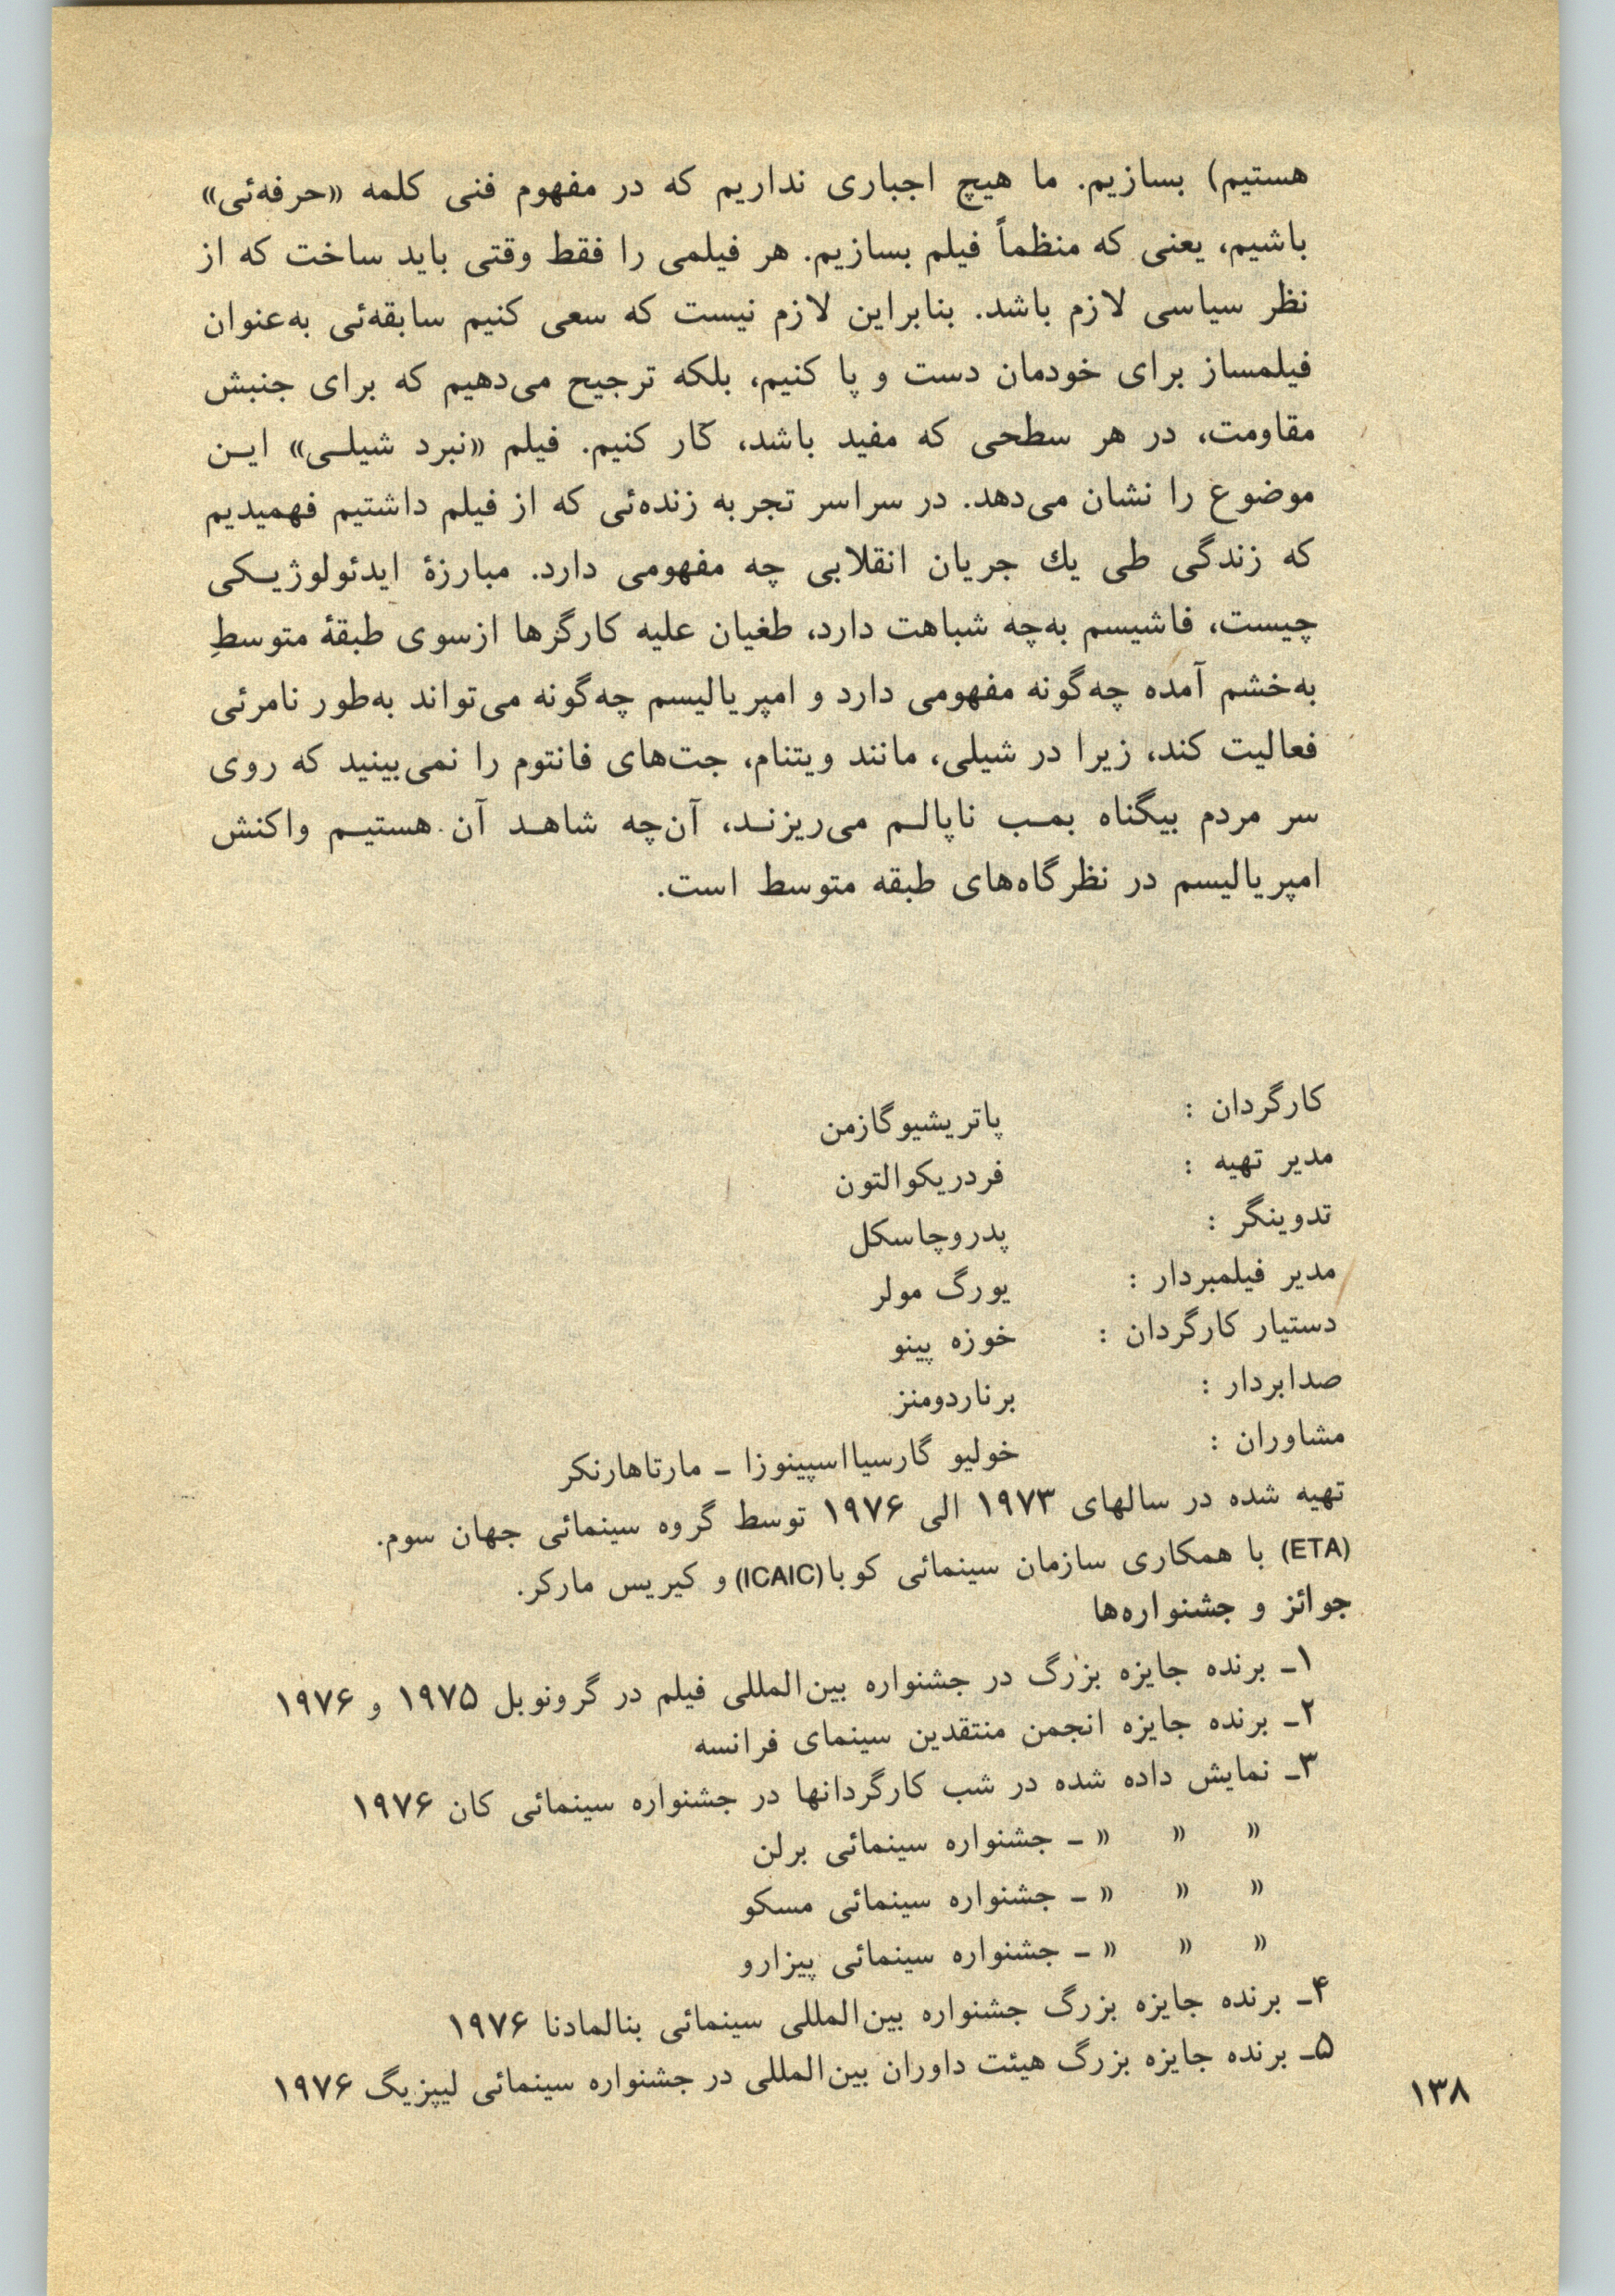 هستیم) بسازیم. ما هیچ اجباری نداریم که در مفهوم فنی کلمه «حرفه‌ئی»
باشیم، یعنی که منظماً فیلم بسازیم. هر فیلمی را فقط وقتی باید ساخت که از
نظر سیاسی لازم باشد. بنابراین لازم نیست که سعی کنیم سابقه‌ئی به‌عنوان
فیلمساز برای خودمان دست و پا کنیم، بلکه ترجیح می‌دهیم که برای جنبش
مقاومت، در هر سطحی که مفید باشد، کار کنیم. فیلم «نبرد شیلی» این
موضوع را نشان می‌دهد. در سراسر تجربه زنده‌ئی که از فیلم داشتیم فهمیدیم
که زندگی طی یك جریان انقلابی چه مفهومی دارد. مبارزهٔ ایدئولوژیکی
چیست، فاشیسم به‌چه شباهت دارد، طغیان علیه کارگرها ازسوی طبقهٔ متوسطِ
به‌خشم آمده چه‌گونه مفهومی دارد و امپریالیسم چه‌گونه می‌تواند به‌طور نامرئی
فعالیت کند، زیرا در شیلی، مانند ویتنام، جت‌های فانتوم را نمی‌بینید که روی
سر مردم بیگناه بمب ناپالم می‌ریزند، آن‌چه شاهد آن هستیم واکنش
امپریالیسم در نظرگاه‌های طبقه متوسط است.
کارگردان : پاتریشیوگازمن
مدیر تهیه : فردریکوالتون
تدوینگر : پدروچاسکل
مدیر فیلمبردار : یورگ مولر
دستیار کارگردان : خوزه پینو
صدابردار : برناردومنز
مشاوران : خولیو گارسیااسپینوزا ـ مارتاهارنکر
تهیه شده در سالهای ۱۹۷۳ الی ۱۹۷۶ توسط گروه سینمائی جهان سوم.
(ETA) با همکاری سازمان سینمائی کوبا(ICAIC) و کیریس مارکر.
جوائز و جشنواره‌ها
۱ـ برنده جایزه بزرگ در جشنواره بین‌المللی فیلم در گرونوبل ۱۹۷۵ و ۱۹۷۶
۲ـ برنده جایزه انجمن منتقدین سینمای فرانسه
۳ـ نمایش داده شده در شب کارگردانها در جشنواره سینمائی کان ۱۹۷۶
» » » ـ جشنواره سینمائی برلن
» » » ـ جشنواره سینمائی مسکو
» » » ـ جشنواره سینمائی پیزارو
۴ـ برنده جایزه بزرگ جشنواره بین‌المللی سینمائی بنالمادنا ۱۹۷۶
۵ـ برنده جایزه بزرگ هیئت داوران بین‌المللی در جشنواره سینمائی لیپزیگ ۱۹۷۶
۱۳۸